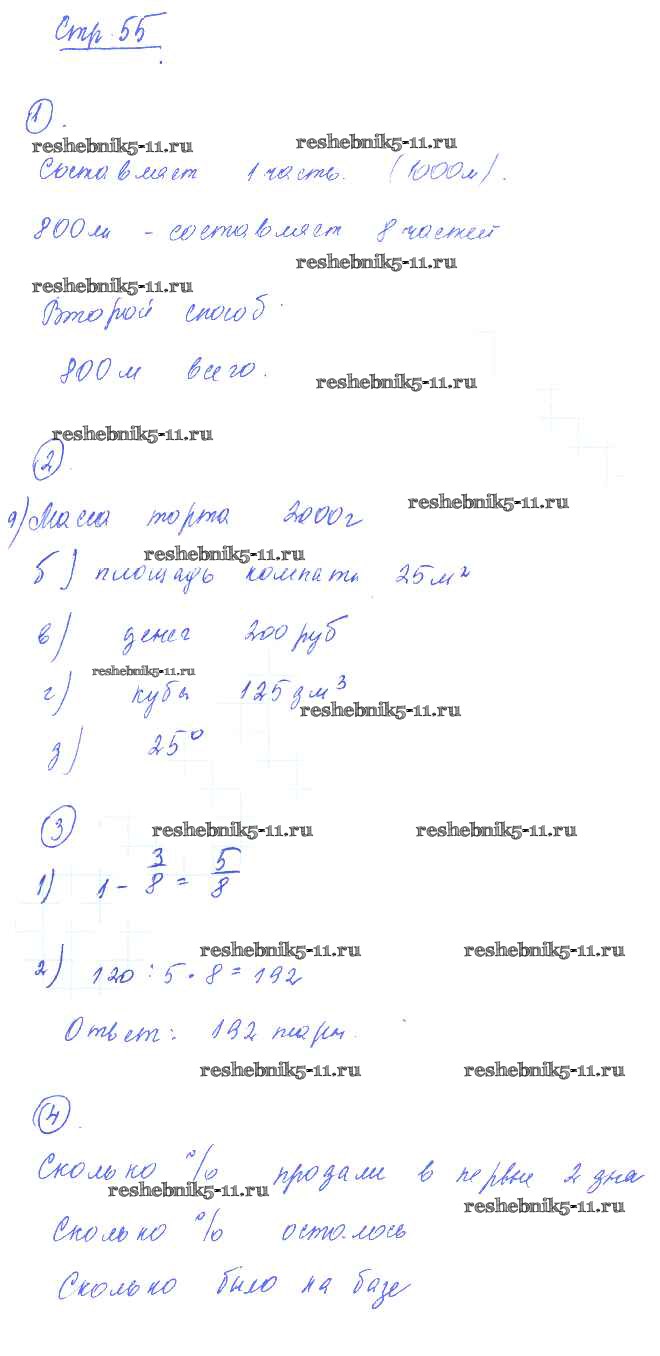 Стр. 55
1.
reshebnik5-11.ru reshebnik5-11.ru
Составляет 1 часть. (1000м).
800м - составляет 8 частей
reshebnik5-11.ru
reshebnik5-11.ru
Второй способ.
800м всего.
reshebnik5-11.ru
reshebnik5-11.ru
2.
reshebnik5-11.ru
а) Масса торта 2000г
reshebnik5-11.ru
б) площадь комнаты 25м²
в) денег 200 руб
reshebnik5-11.ru
г) куба 125 дм³
reshebnik5-11.ru
д) 25°
3
reshebnik5-11.ru reshebnik5-11.ru
1) 1 - 3/8 = 5/8
reshebnik5-11.ru reshebnik5-11.ru
2) 120 : 5 · 8 = 192
Ответ: 192 тары.
reshebnik5-11.ru reshebnik5-11.ru
4.
Сколько % продали в первые 2 дня
reshebnik5-11.ru
reshebnik5-11.ru
Сколько % осталось
Сколько было на базе